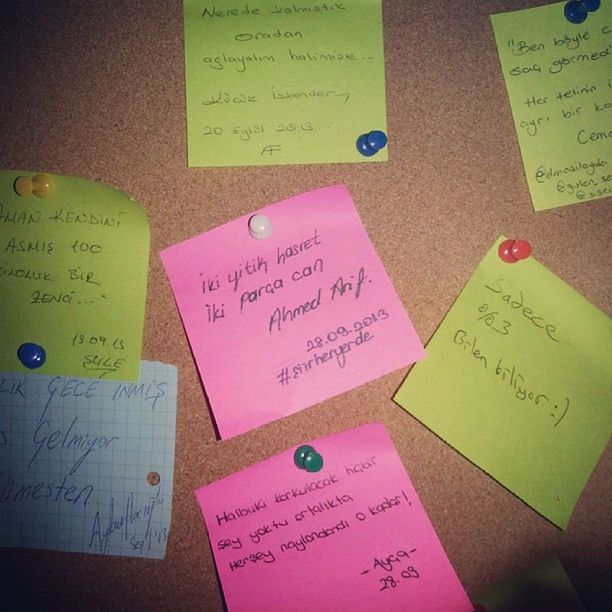 Nerede kalmıştık
oradan
ağlayalım halimize...
Küçük İskender
20 Eylül 2013...
AF
"Ben böyle
saç görmedi
Her telinin
ayrı bir
Cema
AMAN KENDİNİ
ASMIŞ 100
BİR
ZENCİ...
13.09.13
ŞULE
İki yitik hasret
İki parça can
Ahmed Arif.
28.09.2013
#siirheryerde
Sadece
Bilen biliyor :)
LIK GECE İNMİŞ
Gelmiyor
ümesten
Sep '13
Halbuki korkulacak hiçbir
şey yoktu ortalıkta
Herşey naylondandı o kadar!
- Ayça -
28.09